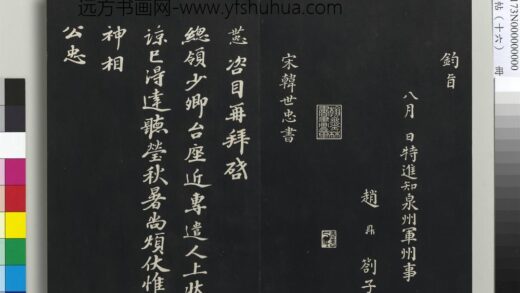 远方书画网-www.yfshuhua.com
173N000000000
帖(十六)
鈞旨
八月 日特進知泉州軍州事
趙鼎劄子
宋韓世忠書
咨目再拜啓
總領少卿台座近專遣人上狀
諒已得達聽瑩秋暑尚煩伏惟
神相
公忠